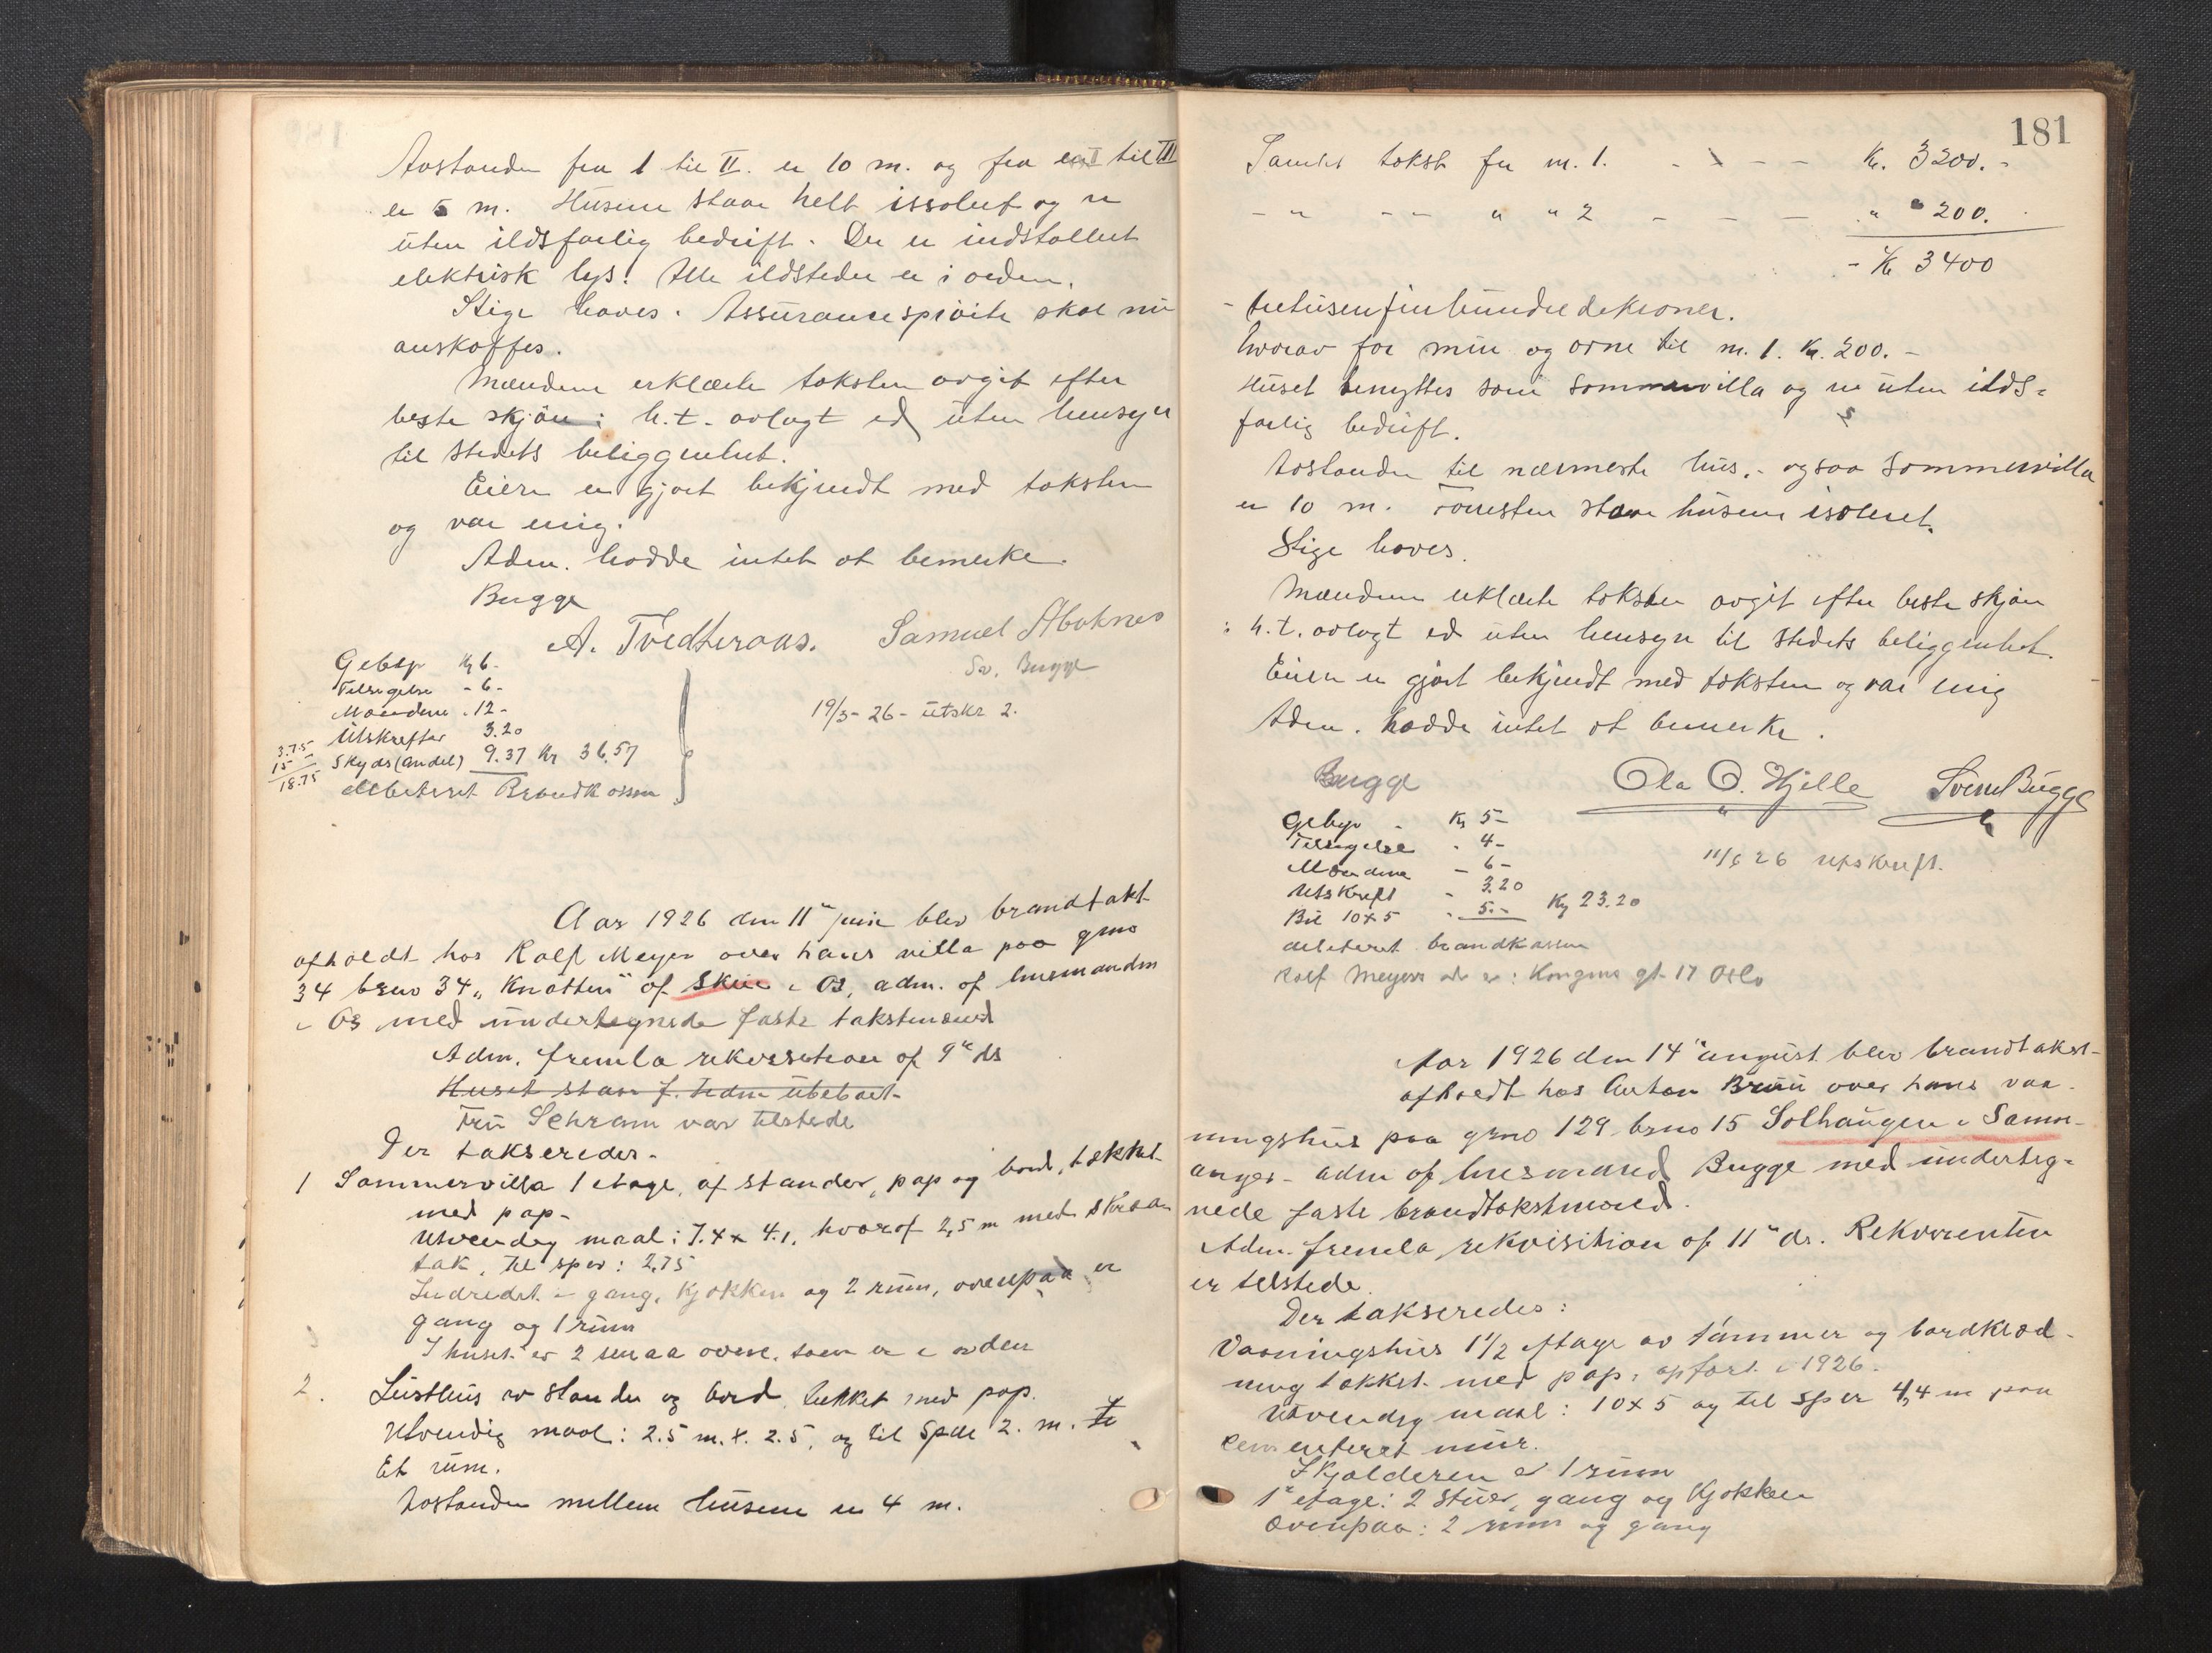 Avstanden fra 1 til II. er 10 m. og fra II til III
er 5 m. Husene staar helt issolert og er
uten ildsfarlig bedrift. Der er indstallert
elektrisk lys. Alle ildsteder er i orden.
Stige haves. Assurancesprøite skal nu
anskaffes.
Mændene erklærte taksten avgit efter
beste skjøn i h.t. avlagt ed uten hensyn
til stedets beliggenhet.
Eieren er gjort bekjendt med taksten
og var enig.
Adm. hadde intet at bemerke.
Bugge
A. Tvedteraas. Samuel Aboknes
Sv. Bugge
Gebyr Kr 6-
Tilsigelse - 6-
Mændene - 12-
Utskrifter 3.20
Skyds (andel) 9.37 Kr 36,57
3.75
15
18.75
debiteret Brandkassen
19/5-26- utskr 2.
Aar 1926 den 11te juni blev brandtakt
afholdt hos Rolf Meyer over hans villa paa gno
34 brno 34 "Knatten" af Skeie i Os, adm. af lensmanden
i Os med undertegnede faste takstmænd
Adm. fremla rekvisition af 9de ds
Huset staar f. tiden ubeboet-
Fru Schram var tilstede
Der takseredes-
1 Sommervilla 1 etage, af stander, pap og bord, tækket
med pap-
Utvendig maal: 7.4 x 4.1, hvoraf 2,5 m med skraa
tak, til sper: 2,75
Indredet i gang, kjøkken og 2 rum, ovenpaa er
gang og 1 rum
I huset er 2 smaa ovene, som er i orden
2. Lusthus av stander og bord, tækket med pap.
Utvendig maal: 2.5 m. x. 2.5, og til sper 2. m.
Et rum.
Avstanden mellem husene er 4 m.
181
Samlet takst for nr. 1. - - - - Kr. 3200.-
- " - - " " 2 - - - " 200.
- Kr 3400
- tretusenfirehundredekroner.
hvorav for mur og ovne til nr. 1. Kr. 200.-
Huset benyttes som sommervilla og er uten ilds-
farlig bedrift.
Avstanden til nærmeste hus,- ogsaa sommervilla
er 10 m. Forresten staar husene isoleret.
Stige haves.
Mændene erklærte taksten avgit efter beste skjøn
i h.t. avlagt ed uten hensyn til stedets beliggenhet.
Eieren er gjort bekjendt med taksten og var enig
Adm. hadde intet at bemerke.
Bugge Ola O. Hjelle Sverre Bugge
Gebyr - Kr 5-
Tilsigelse - 4-
Mændene - 6-
Utskrift - 3.20
Bil 10x5 - 5.- Kr 23.20
debiteret brandkassen
11/6 26 utskrift.
Rolf Meyers adr er: Kongens gt. 17 Oslo
Aar 1926 den 14de august blev brandtakst-
afholdt hos Anton Bruu over hans vaa-
ningshus paa grno 129 brno 15 Solhaugen i Samn-
anger- adm af lensmand Bugge med underteg-
nede faste brandtakstmænd.
Adm. fremla rekvisition af 11te ds. Rekvirenten
er tilstede.
Der takseredes:
Vaaningshus 1 1/2 etage av tømmer og bordklæd-
ning takket med pap, opført i 1926.
Utvendig maal: 10 x 5 og til sper 4,4 m paa
cementeret mur.
I kjælderen er 1 rum
1ste etage: 2 stuer, gang og kjøkken
Ovenpaa: 2 rum og gang